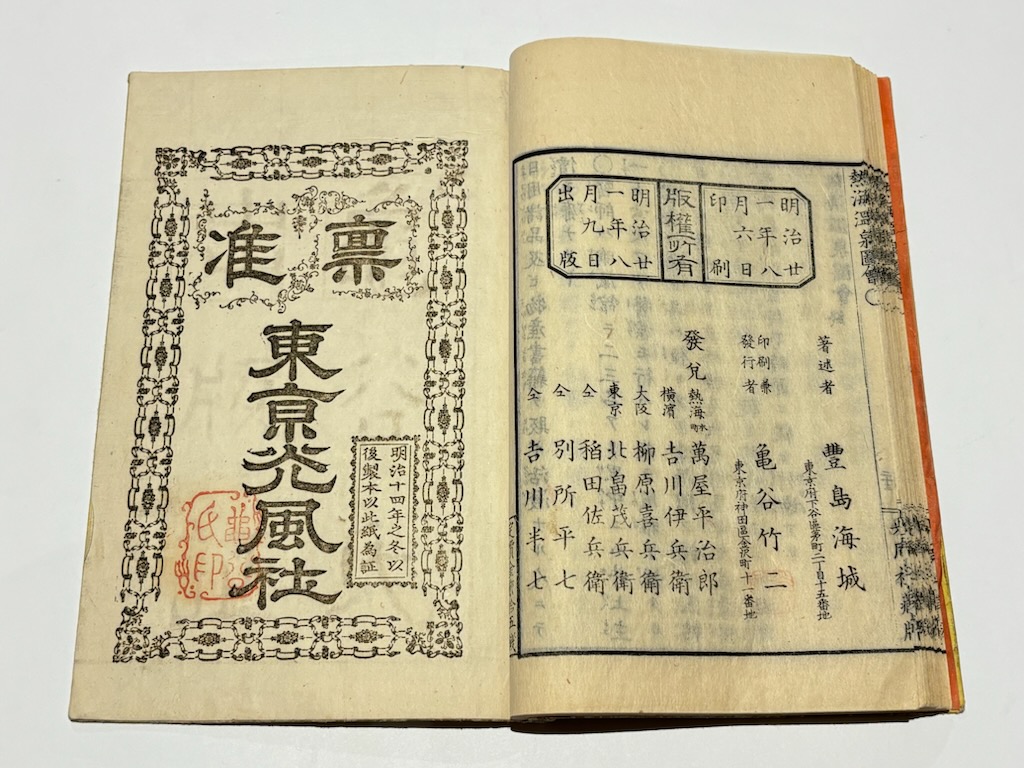 明治廿
一年八
月六日
印刷
版權所有
明治廿
一年八
月九日
出版
著述者
豐島海城
東京府下谷區茅町二丁目十五番地
印刷兼
發行者
亀谷竹二
東京府神田區金沢町十一番地
發兌
熱海 萬屋平治郎
橫濱 吉川伊兵衛
大阪 柳原喜兵衛
東京 北畠茂兵衛
仝 稻田佐兵衛
仝 別所平七
仝 吉川半七
熱海溫泉圖會
稟准
東京光風社
明治十四年之冬以
後製本以此紙為証